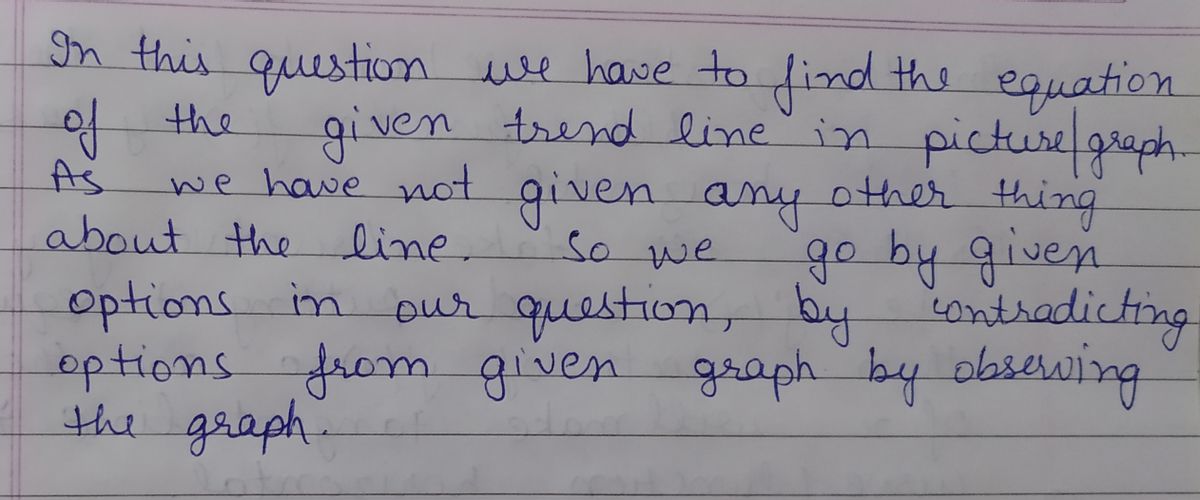 In this question we have to find the equation
of the given trend line in picture/graph.
As we have not given any other thing
about the line. So we go by given
options in our question, by contradicting
options from given graph by observing
the graph.